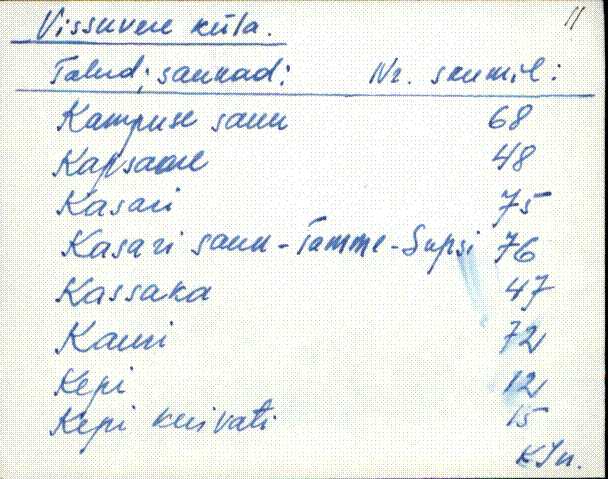 Vissuvere küla. 11
Talud; saunad: Nr. skeemil:
Kampuse saun 68
Kapsaare 48
Kasari 75
Kasari saun - Tamme - Supsi 76
Kassaka 47
Kauri 72
Kepi 12
Kepi kuivati 15